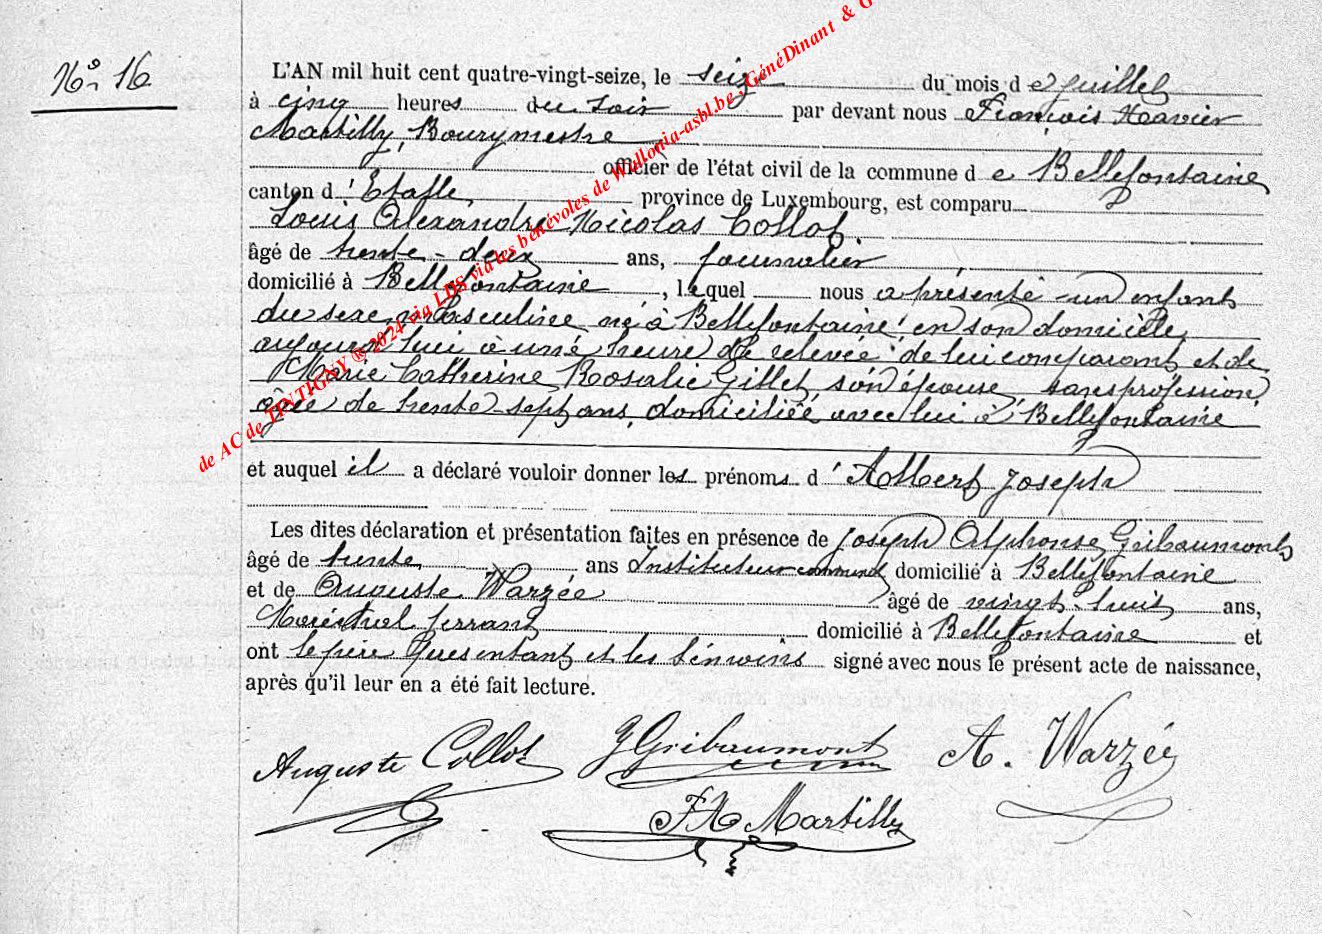 No. 16
L'AN mil huit cent quatre-vingt-seize, le seize du mois de juillet
à cinq heures du soir par devant nous François Xavier
Martilly, Bourgmestre
officier de l'état civil de la commune de Bellefontaine
canton d'Etalle, province de Luxembourg, est comparu
Louis Alexandre Nicolas Collot
âgé de trente-deux ans, journalier
domicilié à Bellefontaine, lequel nous a présenté un enfant
du sexe masculin né à Bellefontaine en son domicile,
aujourd'hui à une heure de relevée de lui comparant et de
Marie Catherine Rosalie Gillet son épouse sans profession,
âgée de trente-sept ans, domiciliée avec lui à Bellefontaine
et auquel il a déclaré vouloir donner les prénoms d'Albert Joseph
Les dites déclaration et présentation faites en présence de Joseph Alphonse Gribaumont
âgé de trente ans Instituteur communal domicilié à Bellefontaine
et de Auguste Warzée âgé de vingt-huit ans,
Maréchal ferrant domicilié à Bellefontaine et
ont le père de l'enfant et les témoins signé avec nous le présent acte de naissance,
après qu'il leur en a été fait lecture.
Auguste Collot J Gribaumont A. Warzée
FX Martilly
de AC de TINTIGNY ® 2024 via LDS via les bénévoles de Wallonia-asbl.be, GénéDinant & G